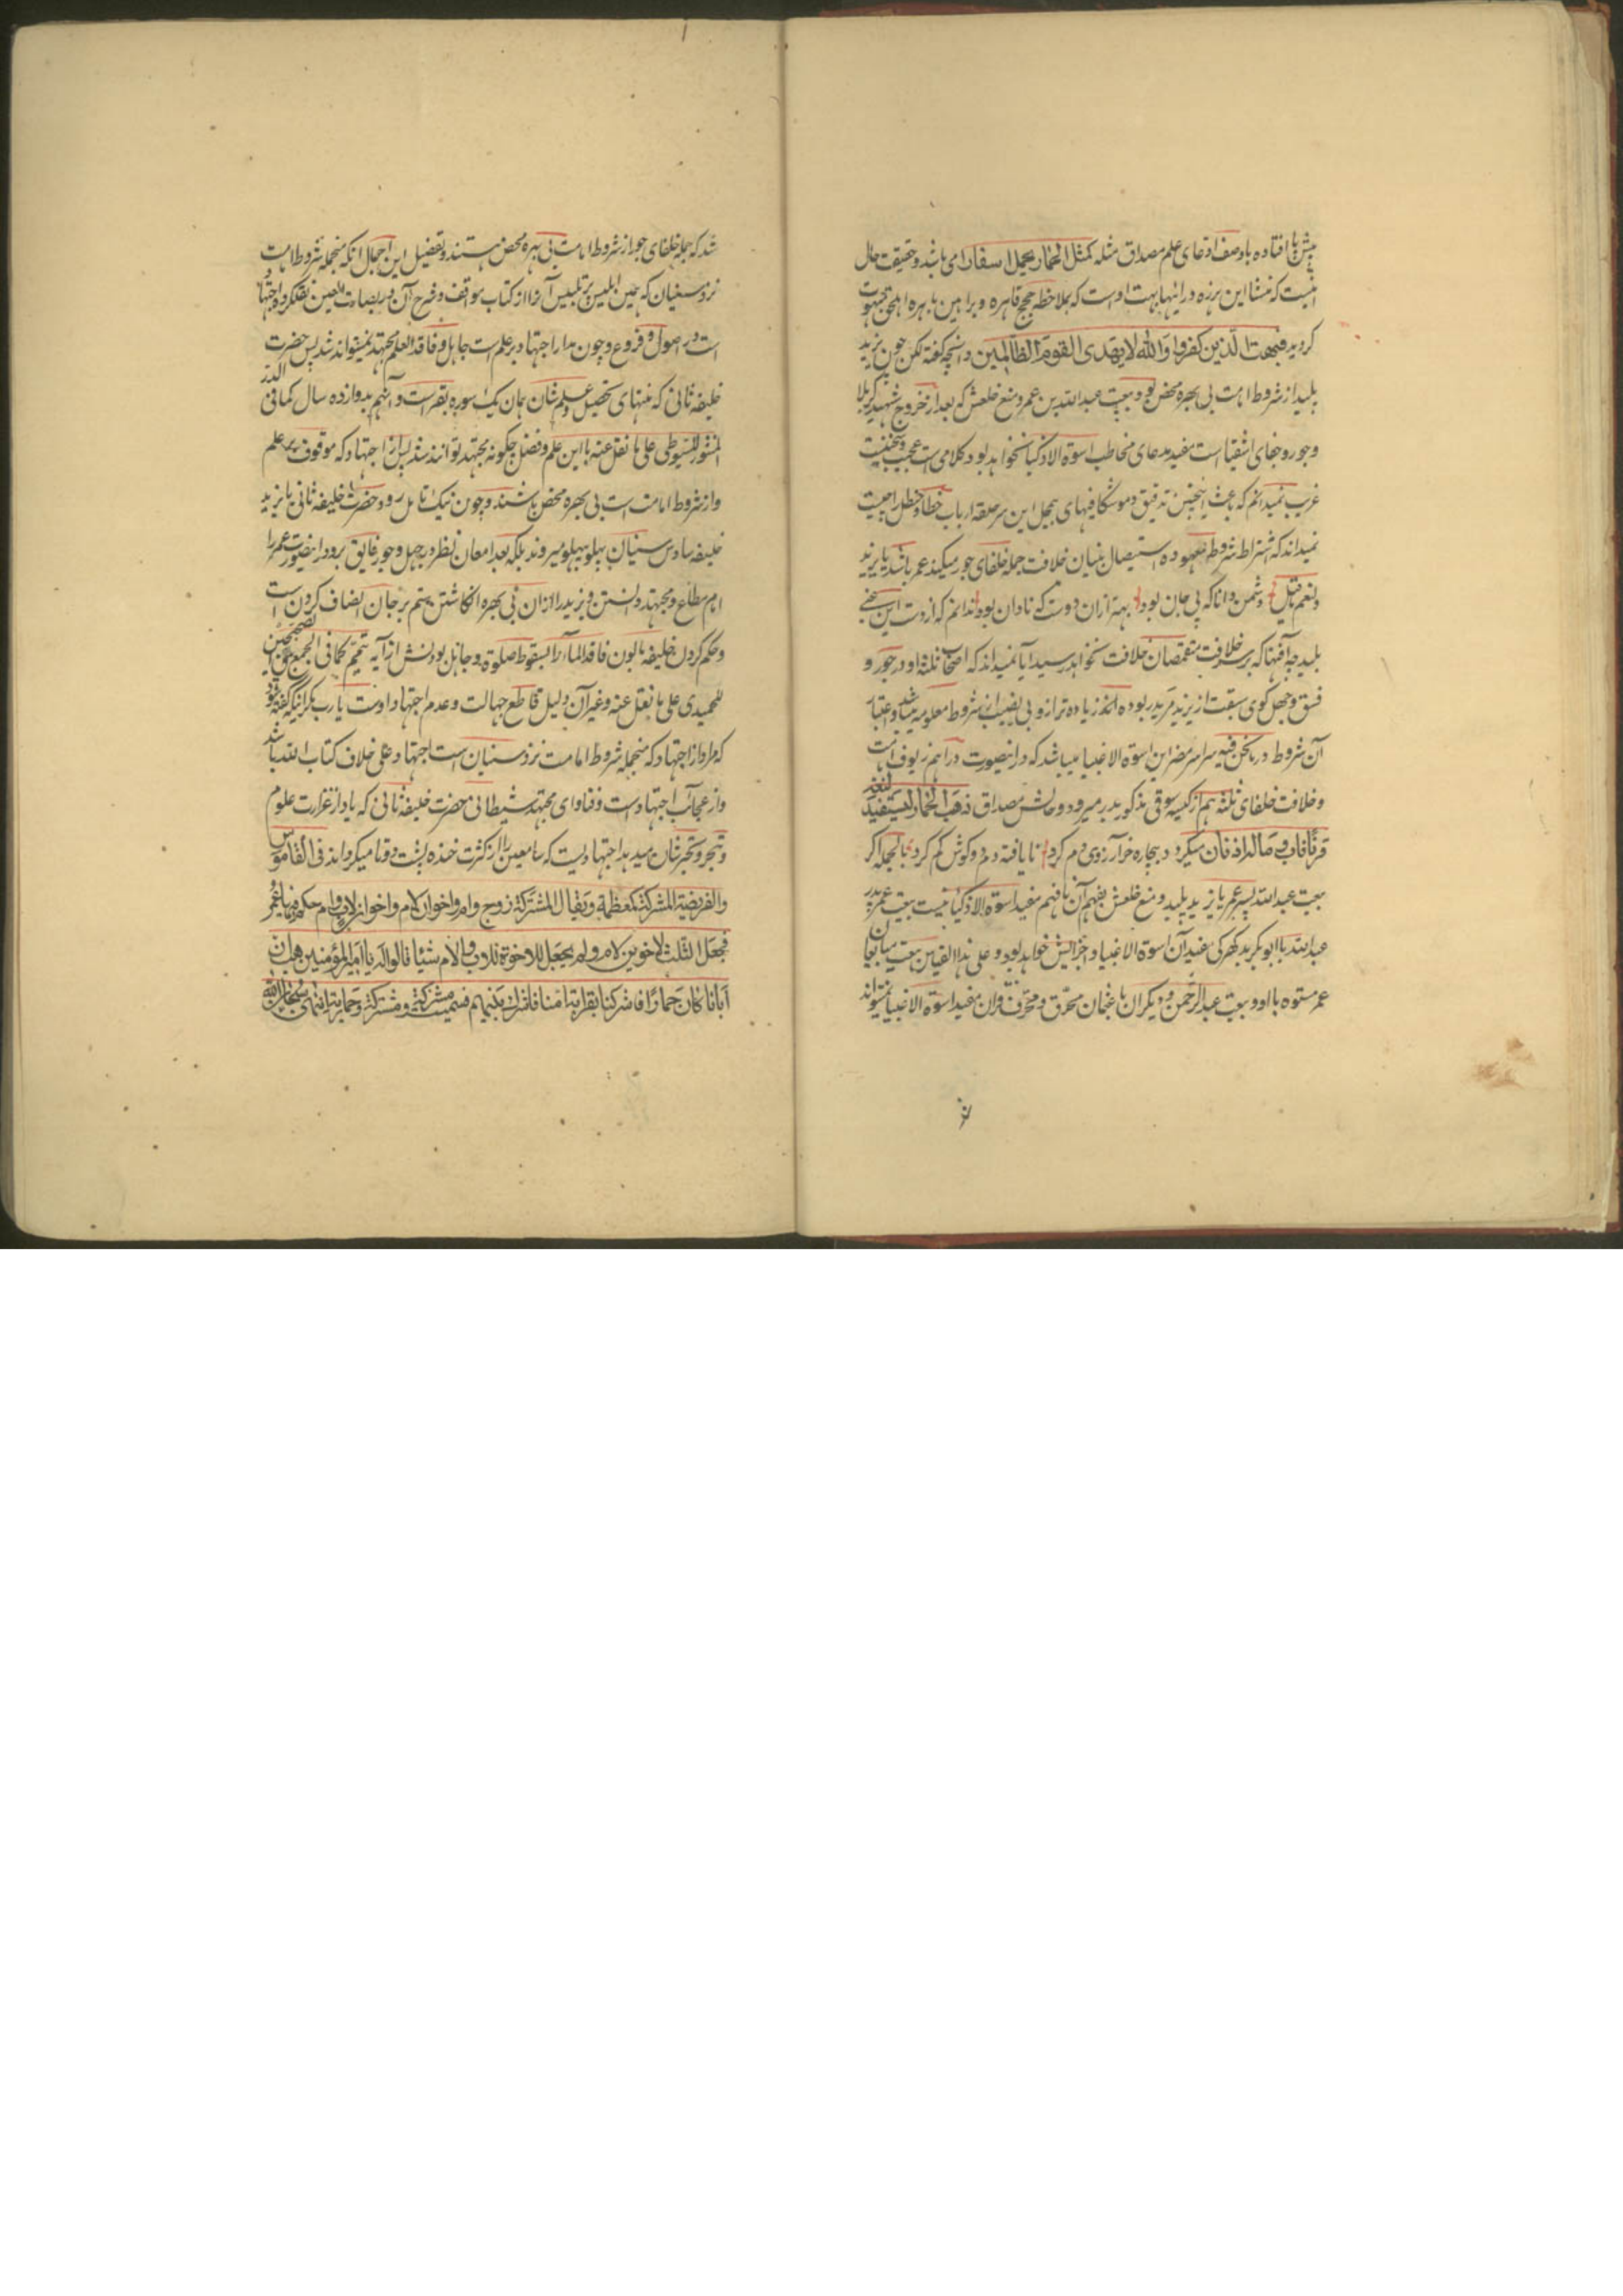 پیش پا افتاده با وصف ادعای علم مصداق مثله کمثل الحمار یحمل اسفارا می باشد و حقیقت حال
اینست که منشا این هرزه درائیها بهت اوست که بملاحظه حجج قاهره و براهین باهره اهل حق مبهوت
گردیده فبهت الذین کفروا والله لا یهدی القوم الظالمین و آنچه گفته لکن چون یزید
پلید از شروط امامت بی بهره محض بود و بیعت عبدالله بن عمر و منع خلعش که بعد از خروج شهید کربلا
و جور و جفای اشقیا است مفید مدعای مخاطب اسوة الاذکیا نخواهد بود کلامی است عجیب و سخنیست
غریب نمیدانم که باعث اینچنین تدقیق و موشکافیهای بیمحل این سر حلقه ارباب خطا و خطل را چیست
نمیداند که اشتراط شروط معهوده استیصال بنیان خلافت جمله خلفای جور میکند عمر باشد یا یزید
و لنعم ما قیل دشمن دانا که پی جان بود بهتر از ان دوست که نادان بود ندانم که از دست این سخن
پلید چه آفتها که بر سر خلافت متقمصان خلافت نخواهد رسید آیا نمیداند که اصحاب ثلثه او در جور و
فسق و جهل گوی سبقت از یزید مرید ربوده اند زیاده تر از و بی نصیب از شروط معلومه میباشند و اعتبار
آن شروط در ما نحن فیه سراسر مضر این اسوة الاغبیا میباشد که درانصورت دراهم زیوف امامت
و خلافت خلفای ثلثه هم از کیسه سوقی مذکور بدر میرود و حالش مصداق ذهب الحمار لیستفید لنفسه
قرنا فاب و ما له اذنان میگردد بیچاره خر آرزوی دم کرد نا یافته دم دو گوش گم کرد بالجمله اگر
بیعت عبدالله پسر عمر با یزید پلید و منع خلعش بفهم آن نافهم مفید اسوة الاذکیا نیست بیعت عمر پدر
عبدالله با ابوبکر بد گهر کی مفید آن اسوة الاغبیا و اخزایش خواهد بود و علی هذا القیاس بیعت مبایعان
عمر معتوه با او و بیعت عبدالرحمن و دیگران با عثمان محرق و محرف قران مفید اسوة الاغبیا نمیتواند
شد که جمله خلفای جور از شروط امامت بی بهره محض هستند و تفصیل این اجمال انکه منجمله شروط امامت
نزد سنیان که همین ابلیس پر تلبیس آنرا از کتاب مواقف و شرح آن در بضاعت نقل کرده اجتهاد
است در اصول و فروع و چون مدار اجتهاد بر علم است جاهل و فاقد العلم مجتهد نمیتواند شد پس حضرت
خلیفه ثانی که منتهای تحصیل و علم شان همان یک سوره بقر است و آنهم بدوازده سال کما فی الدر
المنثور للسیوطی علی ما نقل عنه با این علم و فضل چگونه مجتهد توانند شد پس از اجتهاد که موقوف بر علم
و از شروط امامت است بی بهره محض باشند و چون نیک تامل رود حضرت خلیفه ثانی با یزید
خلیفه سادس سنیان پهلو بپهلو میروند بلکه بعد امعان نظر در جهل و جور فایق برو درانصورت عمر را
امام مطاع و مجتهد دانستن و یزید را ازان بی بهره انگاشتن ستم بر جان انصاف کردن است
و حکم کردن خلیفه مابون فاقد الماء را بسقوط صلوة و جاهل بودنش از آیه تیمم کما فی الجمع بین الصحیحین
للحمیدی علی ما نقل عنه و غیر آن دلیل قاطع جهالت و عدم اجتهاد اوست یا رب مگر انیکه گفته شود
که مراد از اجتهاد که منجمله شروط امامت نزد سنیان است اجتهاد علی خلاف کتاب الله باشد
و از عجائب اجتهادات و فتاوای مجتهد شیطانی حضرت خلیفه ثانی که یاد از غزارت علوم
و تبحر و تحیر شان میدهد اجتهادیست که سامعین را از کثرت خنده پشت دوتا میگرداند فی القاموس
والفریضة المشرکة کمعظمة و یقال المشترکة زوج وام واخوان لام واخوان لاب وام حکم فیها عمر
فجعل الثلث لاخوین لام ولم یجعل للاخوة للاب والام شیئا فقالوا له یا امیر المؤمنین هب ان
ابانا کان حمارا فاشرکنا بقرابة امنا فاشرک بینهم فسمیت مشرکة ومشترکة وحماریة انتهی سبحان الله